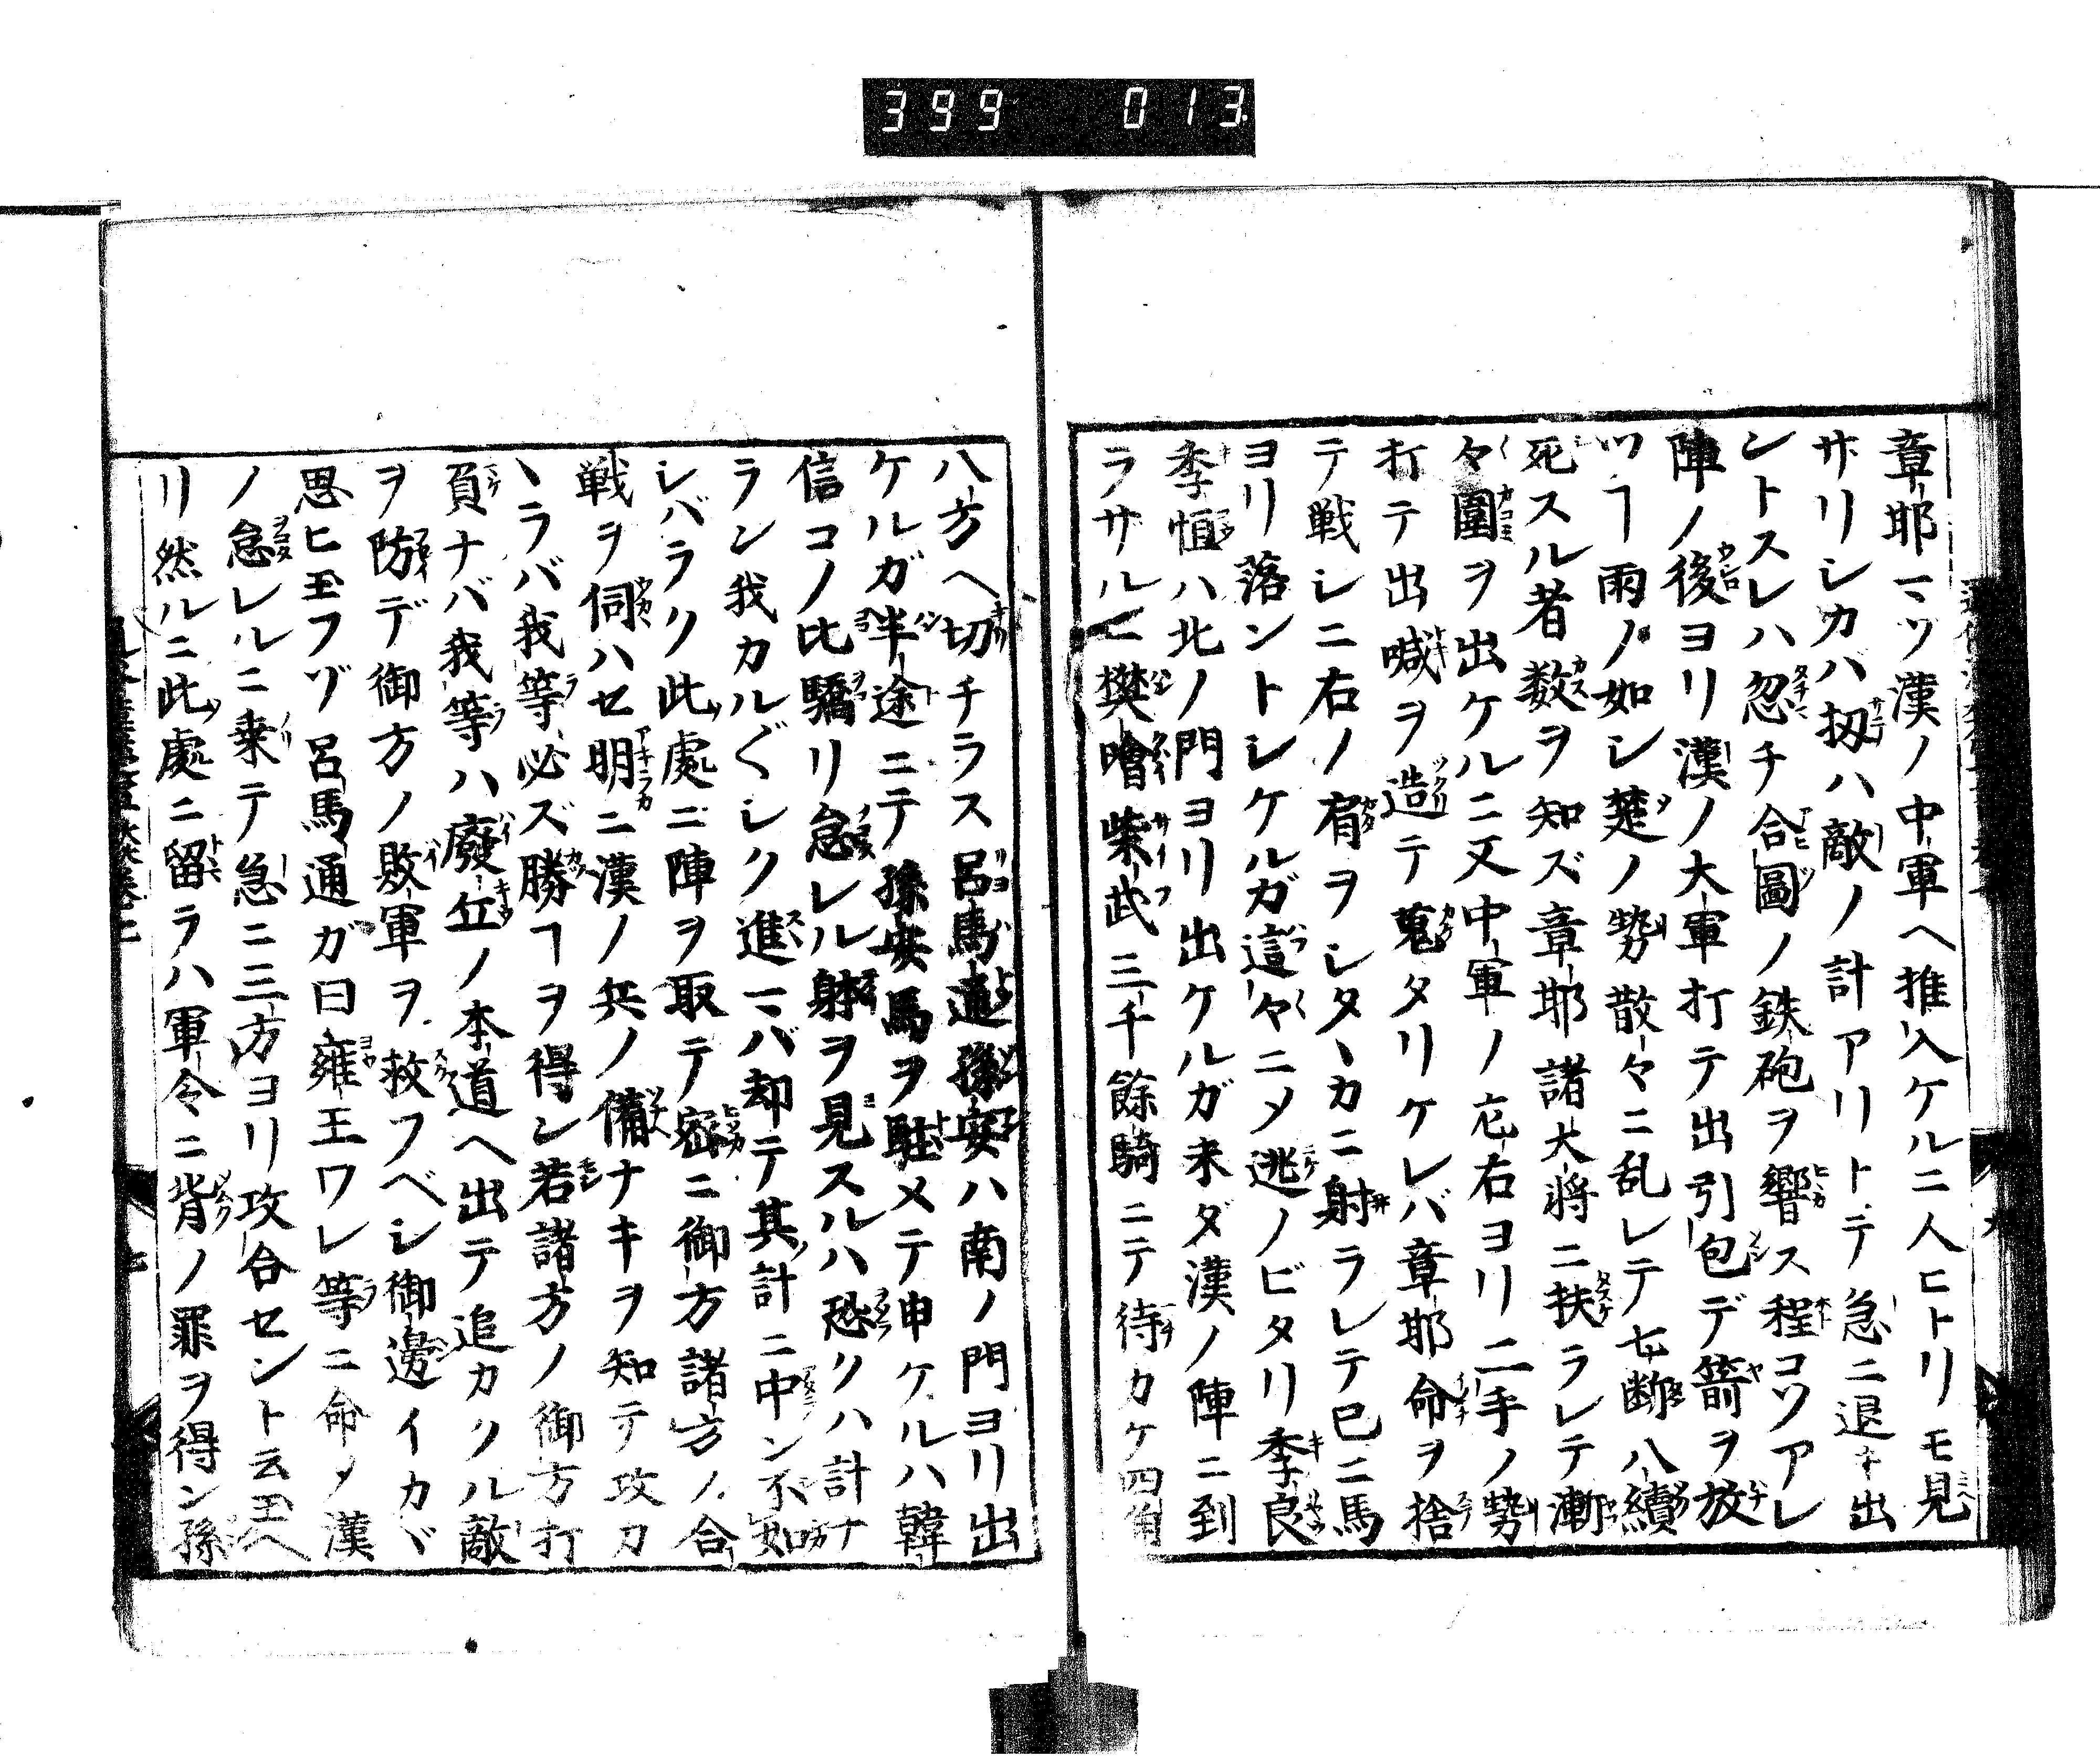 399 013
章邯一ツ漢ノ中軍ヘ推入ケルニ人ヒトリモ見
サリシカバ扨ハ敵ノ計アリトテ急ニ退キ出
ントスレハ忽チ合圖ノ鉄砲ヲ響ス程コソアレ
陣ノ後ヨリ漢ノ大軍打テ出引包デ箭ヲ放
ツヿ雨ノ如シ楚ノ勢散々ニ乱レテ七断八續
死スル者数ヲ知ズ章邯諸大将ニ扶ラレテ漸
々圍ヲ出ケルニ又中軍ノ左右ヨリ二手ノ勢
打テ出喊ヲ造テ蒐タリケレバ章邯命ヲ捨
テ戦シニ右ノ肩ヲシタヽカニ射ラレテ已ニ馬
ヨリ落ントシケルガ這々ニメ逃ノビタリ季良
季恒ハ北ノ門ヨリ出ケルガ未ダ漢ノ陣ニ到
ラサルニ樊噲柴武三千餘騎ニテ待カケ四角
八方ヘ切チラス呂馬通孫安ハ南ノ門ヨリ出
ケルガ半途ニテ孫安馬ヲ駐メテ申ケルハ韓
信コノ比驕リ怠レル躰ヲ見スルハ恐クハ計ナ
ラン我カル〴〵シク進マバ却テ其計ニ中ン不如
シバラク此處ニ陣ヲ取テ密ニ御方諸方ノ合
戦ヲ伺ハセ明ニ漢ノ兵ノ備ナキヲ知テ攻カ
ヽラバ我等必ズ勝ヿヲ得ン若諸方ノ御方打
負ナバ我等ハ廢丘ノ本道ヘ出テ追カクル敵
ヲ防デ御方ノ敗軍ヲ救フベシ御邊イカヾ
思ヒ玉フゾ呂馬通ガ曰雍王ワレ等ニ命メ漢
ノ怠レルニ乗テ急ニ三方ヨリ攻合セント云玉ヘ
リ然ルニ此處ニ留ラハ軍令ニ背ノ罪ヲ得ン孫